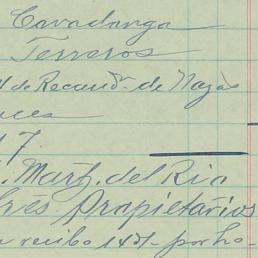 Cavadanga
Terreros
de Recaudr. de Nagas
7
Martz. del Rio
Propietarios
recibo 1431 por ho-